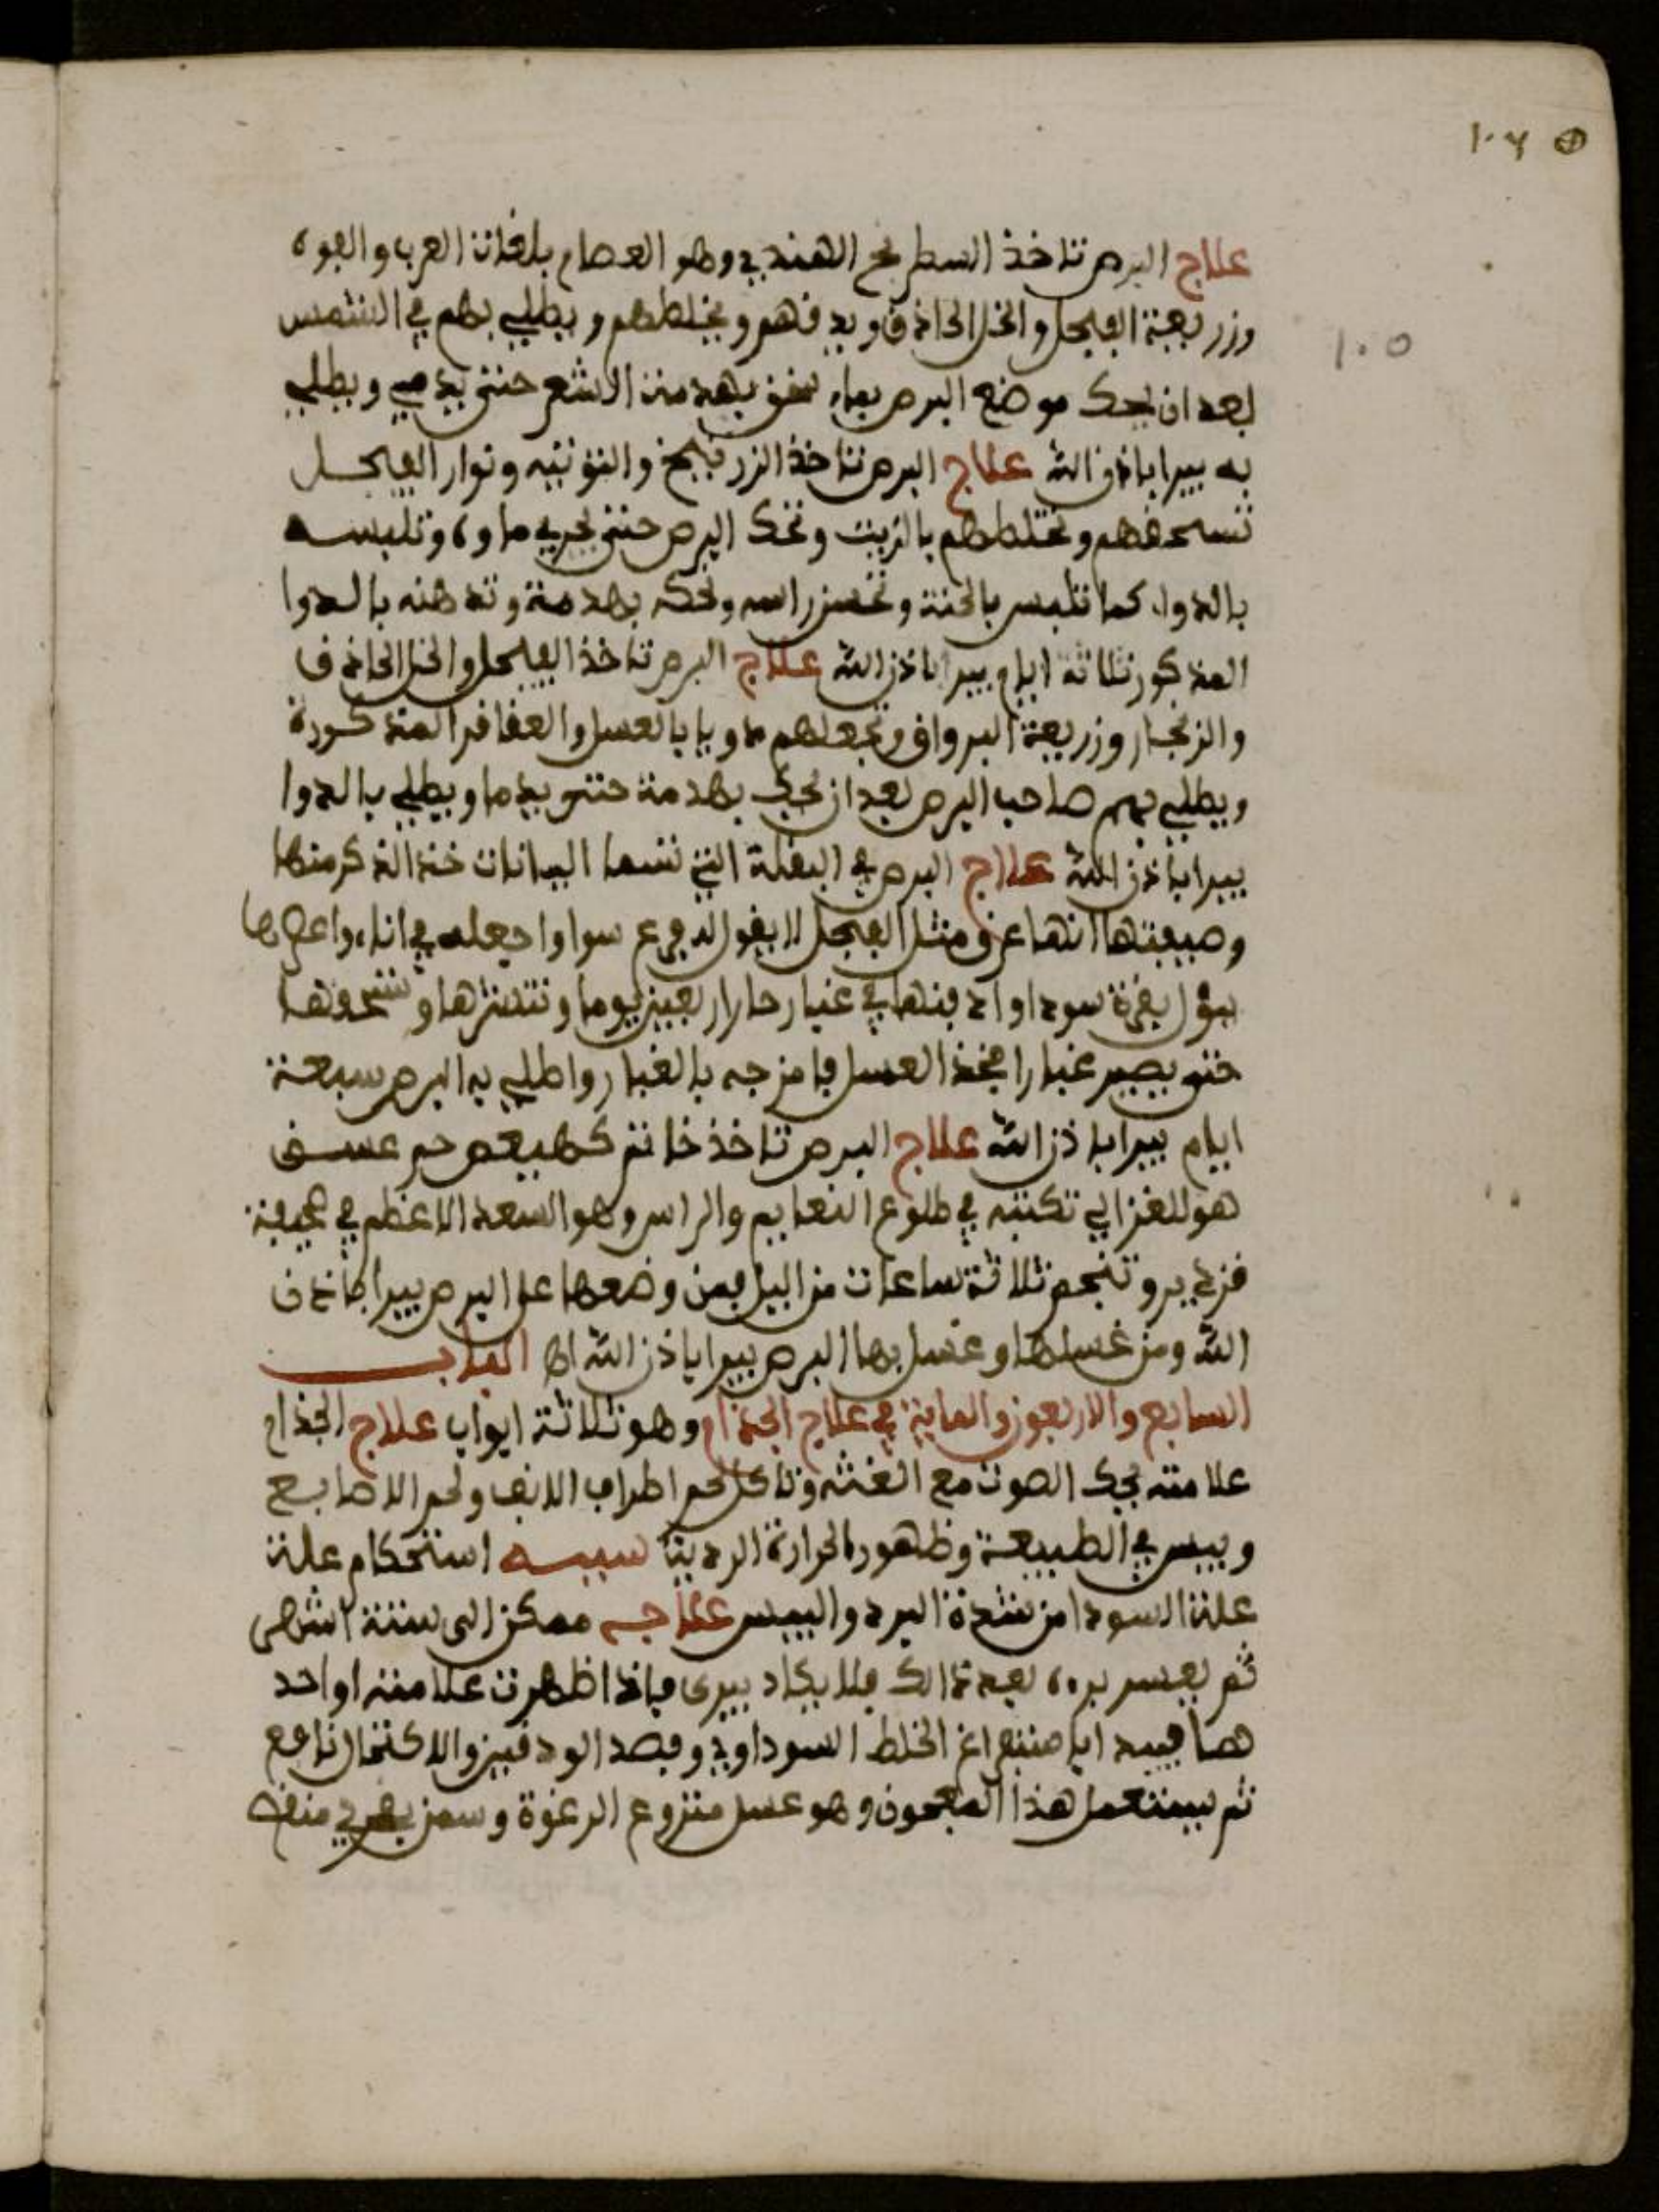 ١٠٤
علاج البرص تاخذ السطريح الهندي وهو العصاب بلغات العرب والفوه
100
وزريعة الفيجل والخل الحاذق ويدقهم ويخلطهم ويطلي بهم في الشمس
بعد ان يحك موضع البرص بماء سخن بهدمت الشعر حتى يدمي ويطلي
به يبرا باذن الله علاج البرص تاخذ الزرنيخ والتوتيه ونوار الفيجل
تسحقهم وتخلطهم بالزيت وتحك البرص حتى يجري ماوه وتلبسه
بالدوا كما تلبس بالحنة وتغسل راسه وتحكه بهدمة وتدهنه بالدوا
المذكور ثلاثة ايام يبرا باذن الله علاج البرص تاخذ الفيجل والخل الحاذق
والزنجار وزريعة البرواق وتجعلهم مدويا بالعسل والعقاقر المذكورة
ويطلي بهم صاحب البرص بعد ان يحك بهدمة حتى يدما ويطلي بالدوا
يبرا باذن الله علاج البرص في البقلة التي تسما البيانات خذ الذكر منها
وصيفتها انها عرف مثل الفيجل لا يقول الدفوع سوا واجعله في اناء واعمرها
ببول بقرة سودا وادفنها في غبار حار اربعين يوما وتنشرها وتسحقها
حتى يصير غبارا فخذ العسل فامزجه بالغبار واطلي به البرص سبعة
ايام يبرا باذن الله علاج البرص تاخذ خاتم كهيعص حم عسق
هو للغزالي تكتبه في طلوع النعايم والراس وهو السعد الاعظم في صحيفة
قزدير وتنجم ثلاثة ساعات من اليل فمن وضعها على البرص يبرا باذن
الله ومن غسلها وغسل بها البرص يبرا باذن الله اه الباب
السابع والاربعون والماية في علاج الجذام وهو ثلاثة ابواب علاج الجذام
علامته بحك الصوت مع الغنه وتاكل لحم اطراف الانف ولحم الاصابع
ويبس في الطبيعة وظهور الحرارة الرديتا سببه استحكام علت
علت السودا من شدة البرد واليبس علاجه ممكن الى ستة اشهر
ثم يعسر بره بعد ذالك فلا يكاد يبرى فاذا ظهرت علامته او احد
هما فيبدا باستفراغ الخلط السوداوي وفصد الودقين والاكتحال نافع
ثم يستعمل هذا المعجون وهو عسل منزوع الرغوة وسمن بقري منقه